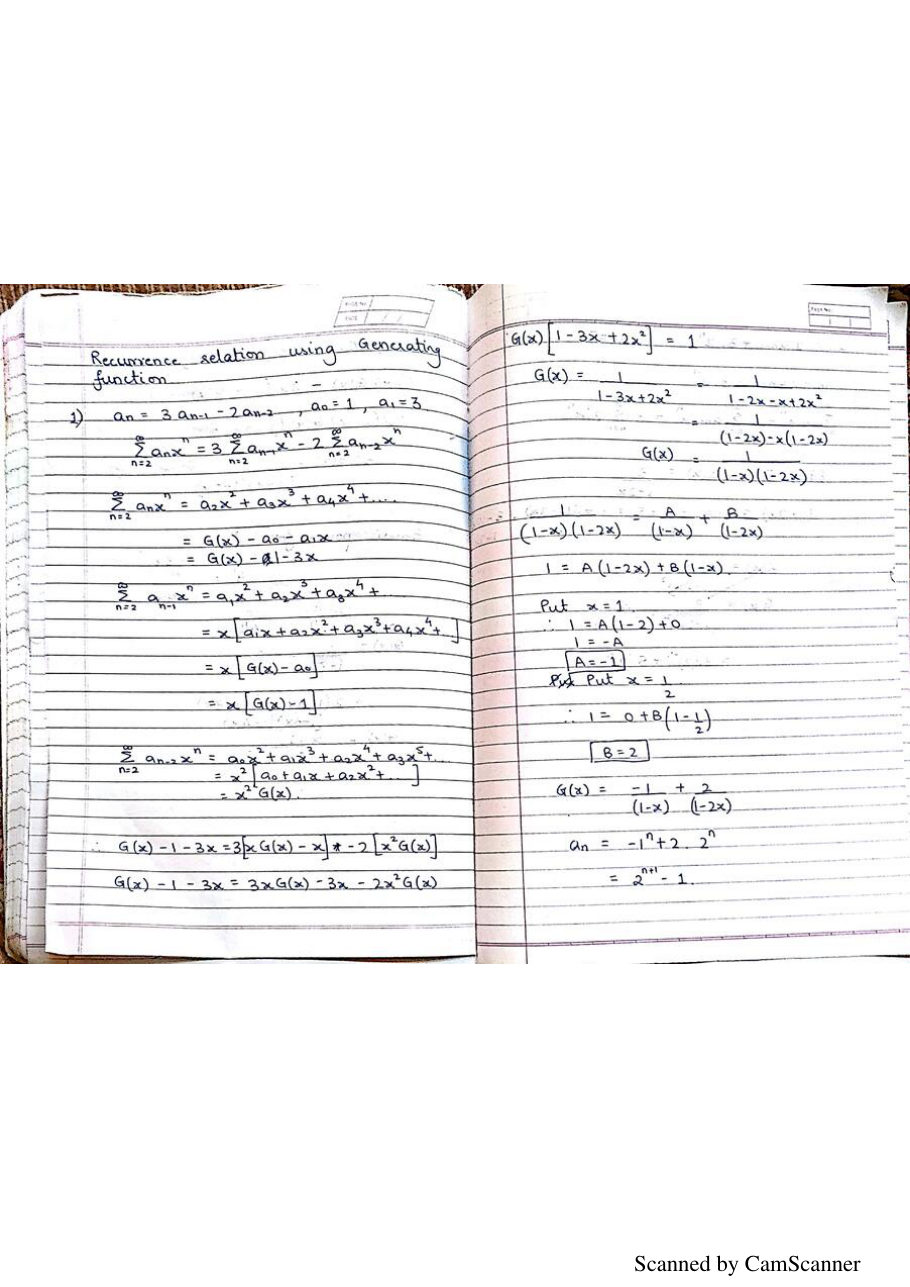 Recurrence relation using Generating
function
1) an = 3 an-1 - 2 an-2 , a0 = 1 , a1 = 3
∞Σn=2 anxⁿ = 3 ∞Σn=2 an-1 xⁿ - 2 ∞Σn=2 an-2 xⁿ
∞Σn=2 anxⁿ = a2x² + a3x³ + a4x⁴ + .....
= G(x) - a0 - a1x
= G(x) - 1 - 3x
∞Σn=2 an-1 xⁿ = a1x² + a2x³ + a3x⁴ +
= x [a1x + a2x² + a3x³ + a4x⁴ + ..]
= x [G(x) - a0]
= x [G(x) - 1]
∞Σn=2 an-2 xⁿ = a0x² + a1x³ + a2x⁴ + a3x⁵ + ...
= x² [a0 + a1x + a2x² + ... ]
= x² G(x)
∴ G(x) - 1 - 3x = 3[x G(x) - x] - 2 [x² G(x)]
G(x) - 1 - 3x = 3x G(x) - 3x - 2x² G(x)
PAGE No.
DATE / /
Page No.
G(x) [1 - 3x + 2x²] = 1
G(x) = 1/(1-3x+2x²) = 1/(1-2x-x+2x²)
= 1/((1-2x)-x(1-2x))
G(x) = 1/((1-x)(1-2x))
1/((1-x)(1-2x)) = A/(1-x) + B/(1-2x)
1 = A(1-2x) + B(1-x)
Put x = 1
∴ 1 = A(1-2) + 0
1 = -A
A = -1
Put x = 1/2
∴ 1 = 0 + B(1 - 1/2)
B = 2
G(x) = -1/(1-x) + 2/(1-2x)
an = -1ⁿ + 2 . 2ⁿ
= 2ⁿ⁺¹ - 1.
Scanned by CamScanner